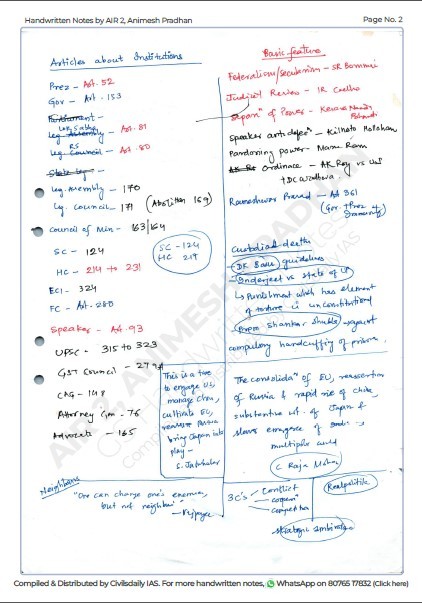 Handwritten Notes by AIR 2, Animesh Pradhan
Page No. 2
Articles about Institutions
Prez - Art. 52
Gov - Art. 153
Parliament -
Lok Sabha
Leg. Assembly - Art. 81
RS
Leg Council - Art. 80
State Leg -
Leg. Assembly - 170
Leg. Council - 171 (Abolition 169)
Council of Min - 163/164
SC - 124
HC - 214 to 231
SC - 124
HC 217
ECI - 324
FC - Art. 280
Speaker - Art. 93
UPSC - 315 to 323
GST Council - 279A
CAG - 148
Attorney Gen - 76
Advocate - 165
This is a time
to engage US,
manage China,
cultivate EU,
reassure Russia
bring Japan into
play -
S. Jaishankar
Neighbours
"One can change one's enemies,
but not neighbour" -
Vajpayee
Basic feature
Federalism/secularism - SR Bommai
Judicial Review - IR Coelho
Separn of Power - Kesava Nanda
Bharati
Speaker anti defecn - Kilhoto Hollohan
Pardoning power - Maru Ram
Ordinace - AK Roy vs UoI
+ DC Wadhwa
Rameshwar Prasad - Art 361
(Gov. + Prez
Immunity)
Custodial deaths
DK Basu guidelines
Inderjeet vs State of UP
↳ Punishment which has element
of torture is unconstitutional
Prem Shankar Shukla - against
compulsory handcuffing of prisoner.
The consolidan of EU, reassertion
of Russia & rapid rise of China,
substantive wt. of Japan &
slower emergence of India -
multipolar world
C. Raja Mohan
3C's - Conflict
- Cooperan
- Competition
Realpolitik
Strategic ambivalence
Compiled & Distributed by Civilsdaily IAS. For more handwritten notes, WhatsApp on 80765 17832 (Click here)